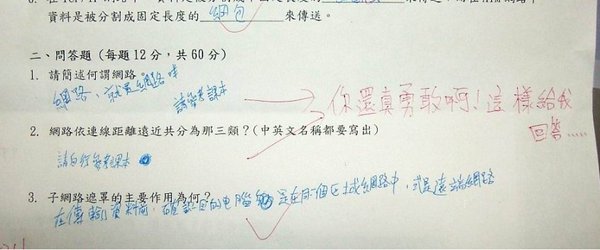 資料是被分割成固定長度的 網包 來傳送。
二、問答題（每題12分，共60分）
1. 請簡述何謂網路
網路，就是網路呀
請參考課本
你還真勇敢啊！這樣給我
回答.....
2. 網路依連線距離遠近共分為那三類？（中英文名稱都要寫出）
請自行參考課本
3. 子網路遮罩的主要作用為何？
在傳輸資料前，確認目的电腦 是在同個区域網路中，或是遠端網路